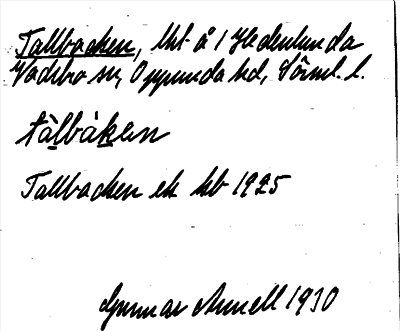 Tallbacken, lht å 1 Hedenlunda
Vadsbro sn, Oppunda hd, Sörml. l.
tàlbáken
Tallbacken ek kb 1925
Gunnar Annell 1930